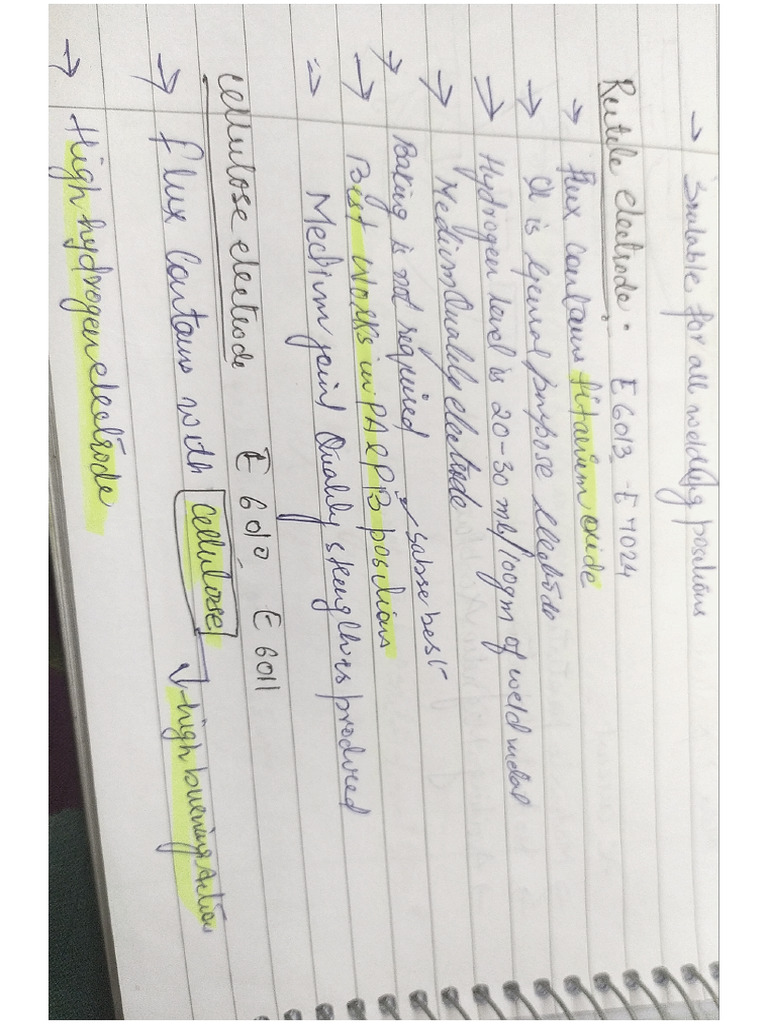 → Suitable for all welding positions
Rutile electrode: E6013 - E7024
→ Flux contains titanium oxide
→ It is general purpose electrode
→ Hydrogen level is 20-30 ml/100gm of weld metal
→ Medium Quality electrode
→ Baking is not required
sabse best
→ Best works in PA & PB positions
⇒ Medium joint Quality strength is produced
Cellulose electrode E 6010, E 6011
→ flux contains with cellulose
↓ high burning action
→ High hydrogen electrode